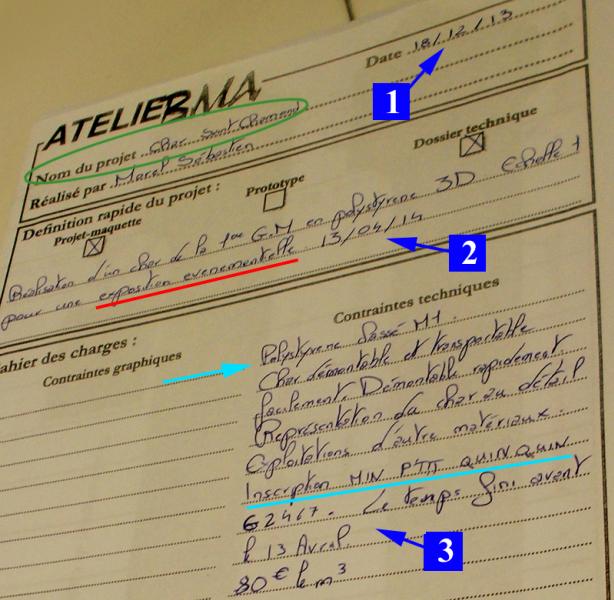 Date 18/12/13
1
ATELIER BMA
Nom du projet Char Saint Chamond
Réalisé par Marcel Sébastien
Definition rapide du projet :
Projet-maquette
Prototype
Dossier technique
Réalisation d'un char de la 1ère G.M en polystyrene 3D Echelle 1
pour une exposition evenementielle 13/04/14
2
ahier des charges :
Contraintes graphiques
Contraintes techniques
Polystyrene classé M1.
Char démontable et transportable
facilement. Démontable rapidement
Représentation du char au détail
Exploitations d'autre matériaux.
Inscription MIN P'TIT QUINQUIN
62467. Le temps fini avant
le 13 Avril.
3
80€ le m³